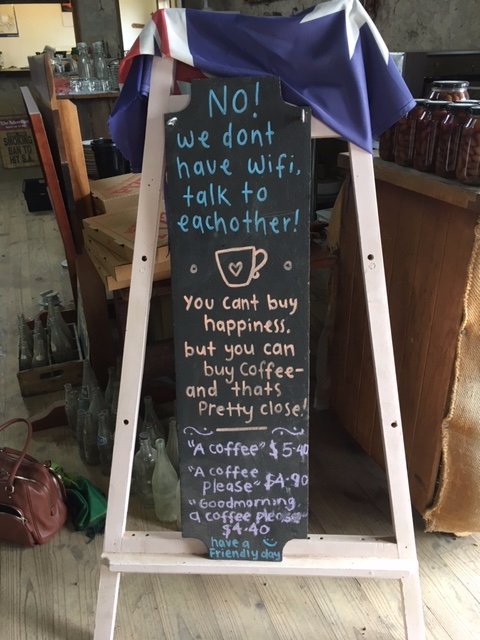 NO!
we dont
have wifi,
talk to
eachother!
You cant buy
happiness.
but you can
buy Coffee-
and thats
Pretty close!
"A coffee" $5.40
"A coffee
Please" $4.90
"Goodmorning
a coffee please
$4.40
have a
Friendly day
SMOKING